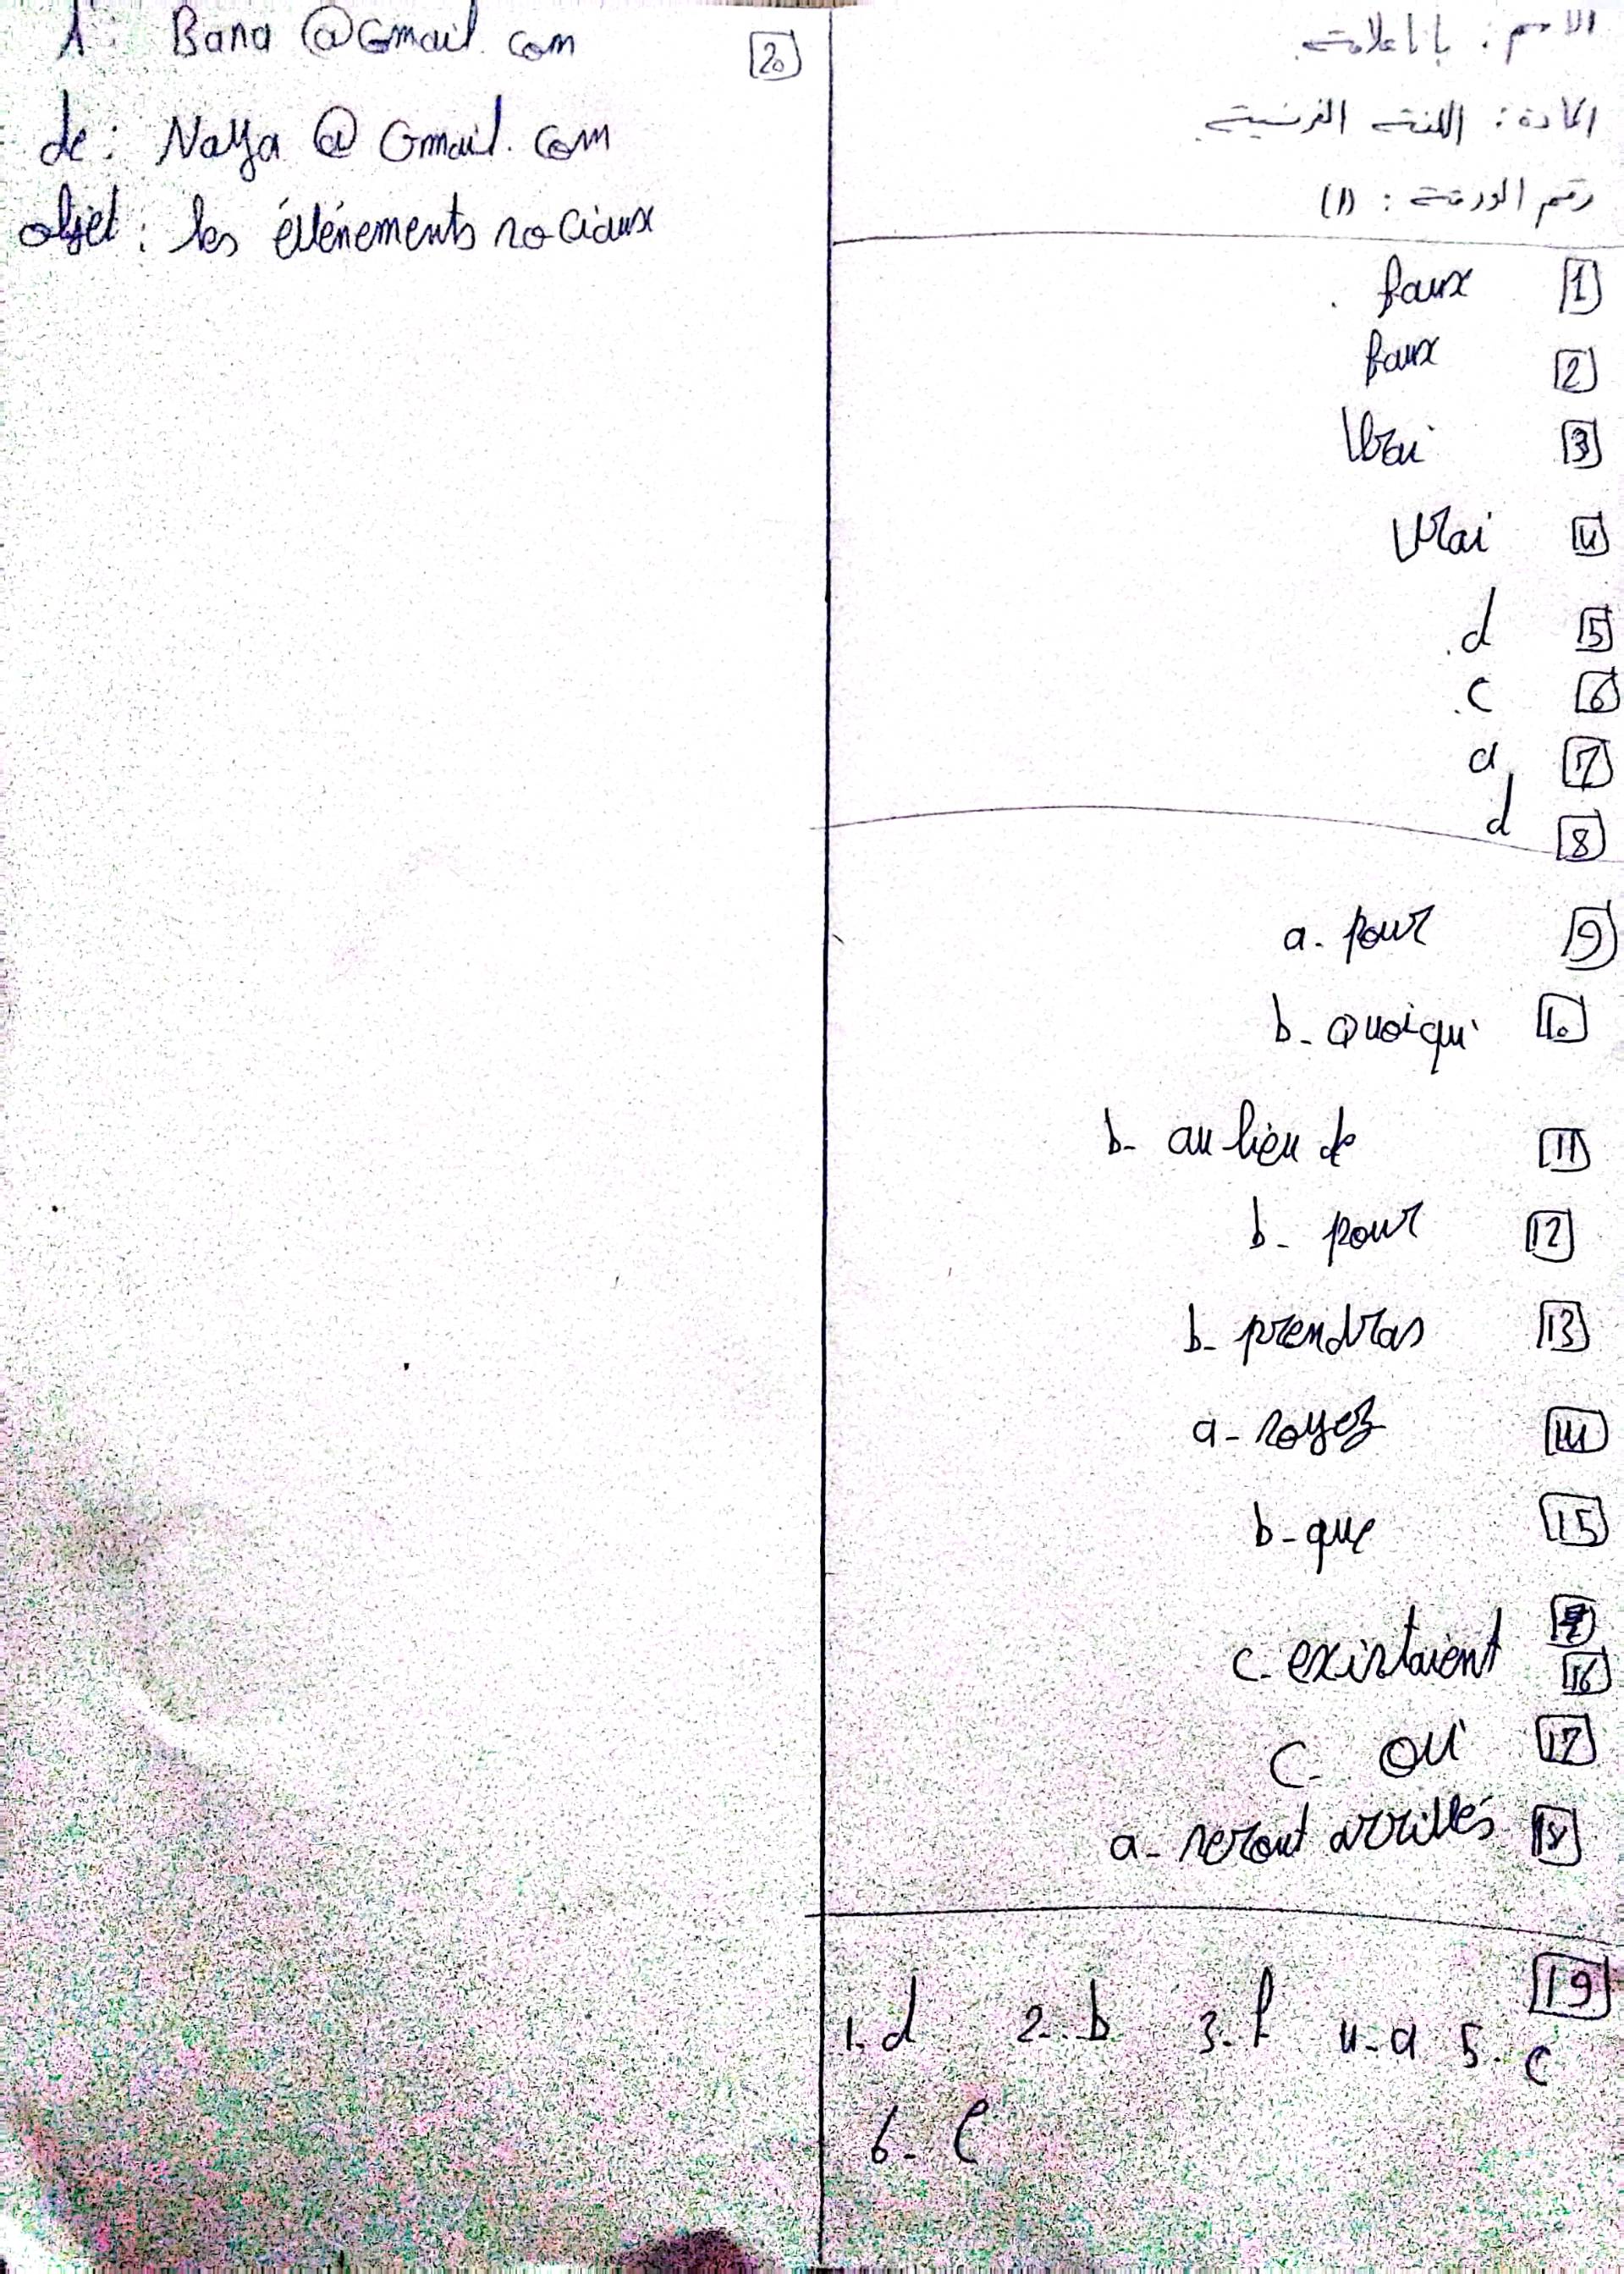 الاسم : بانا علامة.
المادة : اللغة الفرنسية.
رقم الورقة : (1)
faux [1]
faux [2]
Vrai [3]
Vrai [4]
d [5]
c [6]
a [7]
d [8]
a- pour [9]
b- Quoiqui [10]
b- au lieu de [11]
b- pour [12]
b- prendras [13]
a- soyez [14]
b- que [15]
c- existaient [16]
C- où [17]
a- seront arrivés [18]
[19]
1-d 2-b 3-f 4-a 5-c
6-e
[20]
A: Bana @Gmail.com
de: Naya @Gmail.com
objet: les événements sociaux